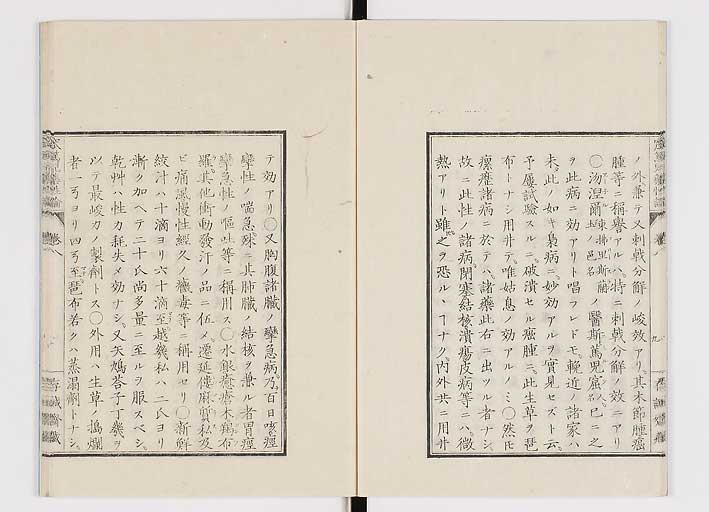 ノ外兼テ又刺戟分解ノ峻效アリ。其末節腫瘤
腫等ニ稱譽アルハ、特ニ刺戟分解ノ效ニアリ
〇
ノ醫斯篤児窟人名已ニ之
ヲ此病ニ效アリト唱フレドモ、輓近ノ諸家ハ
未此ノ如キ梟病ニ妙效アルヲ實見セズト云。
予屢試驗スルニ、破潰セル癌腫ニ此生草ヲ琶
布トナシ用井テ唯姑息ノ效アルノミ〇然氏
瘰癧諸病ニ於テハ、諸藥此右ニ出ツル者ナシ。
故ニ此性ノ諸病閉塞結核潰瘍皮病等ニハ、微
熱アリト雖之ヲ恐ル、ヿナク内外共ニ用井
テ效アリ〇又胸腹諸臓ノ攣急病乃百日咳痙
攣性ノ喘急殊ニ其肺臓ノ結核ヲ兼ル者胃痙
攣急性ノ嘔吐等ニ稱用ス〇水銀癒瘡木
羅其他衝動發汗ノ品ニ伍メ遷延僂麻質私及
ビ痛風慢性經久ノ黴毒等ニ稱用セリ〇新鮮
絞汁八十滴ヨリ六十滴至越幾私ハ二氏ヨリ
漸ク加ヘテ二十氏尚多量ニ至ルヲ服スベシ。
乾艸ハ性力耗失メ效ナシ。又矢鳩荅子丁幾ヲ
以テ最峻力ノ製劑トス〇外用ハ生草ノ搗爛
者一ヨリ四至琶布若クハ蒸溻劑トナシ。